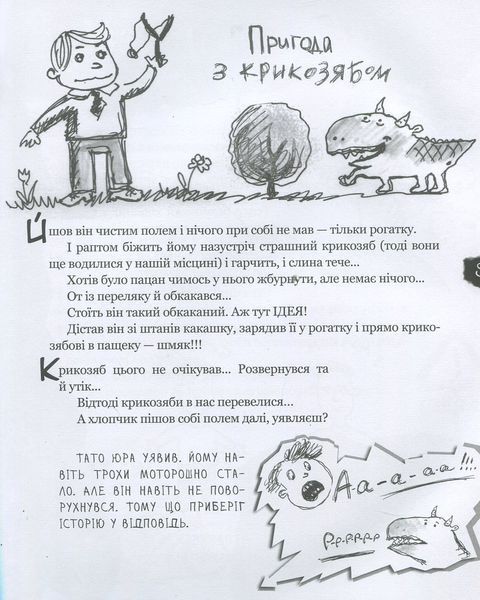 Пригода
з крикозябом
Йшов він чистим полем і нічого при собі не мав — тільки рогатку.
І раптом біжить йому назустріч страшний крикозяб (тоді вони
ще водилися у нашій місцині) і гарчить, і слина тече...
Хотів було пацан чимось у нього жбурнути, але немає нічого...
От із переляку й обкакався...
Стоїть він такий обкаканий. Аж тут ІДЕЯ!
Дістав він зі штанів какашку, зарядив її у рогатку і прямо крико-
зябові в пащеку — шмяк!!!
Крикозяб цього не очікував... Розвернувся та
й утік...
Відтоді крикозяби в нас перевелися...
А хлопчик пішов собі полем далі, уявляєш?
ТАТО ЮРА УЯВИВ. ЙОМУ НА-
ВІТЬ ТРОХИ МОТОРОШНО СТА-
ЛО. АЛЕ ВІН НАВІТЬ НЕ ПОВО-
РУХНУВСЯ. ТОМУ ЩО ПРИБЕРІГ
ІСТОРІЮ У ВІДПОВІДЬ.
А-а-а-аа!!!
Р-р-р-р-р-р